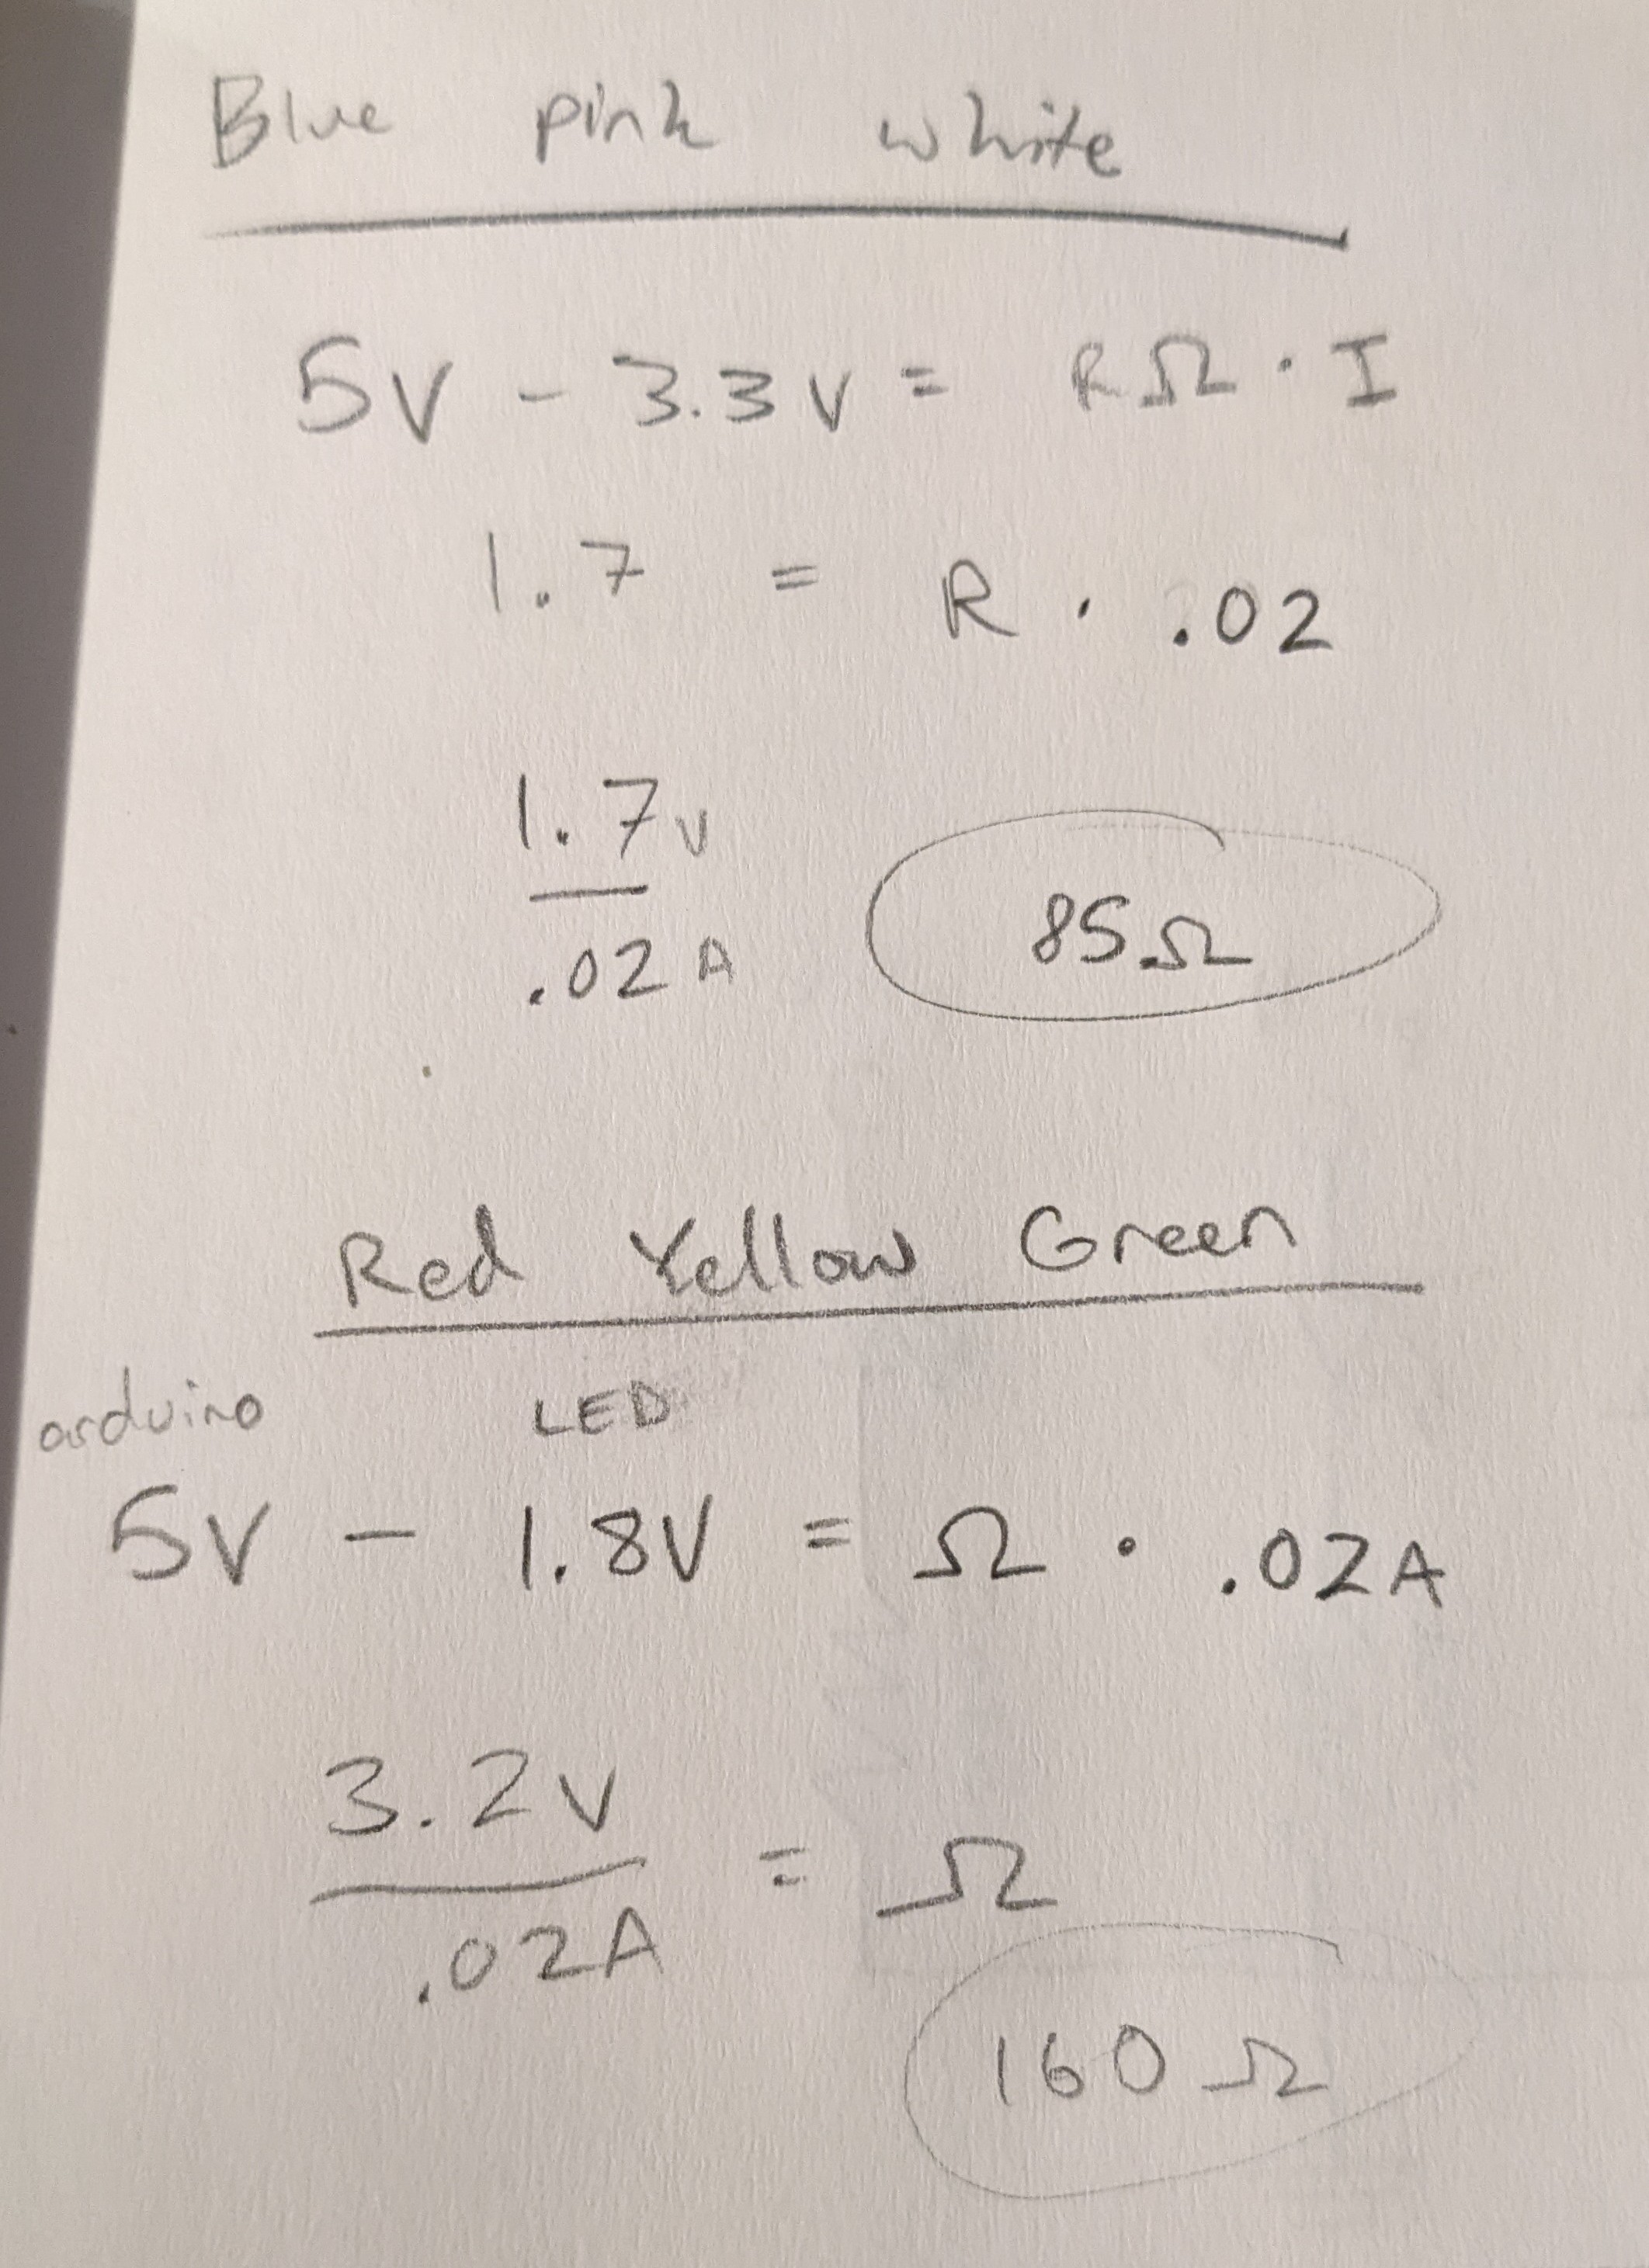 Blue pink white
5V - 3.3V = RΩ · I
1.7 = R · .02
1.7V
.02A
85Ω
Red Yellow Green
arduino LED
5V - 1.8V = Ω · .02A
3.2V
.02A
= Ω
160Ω